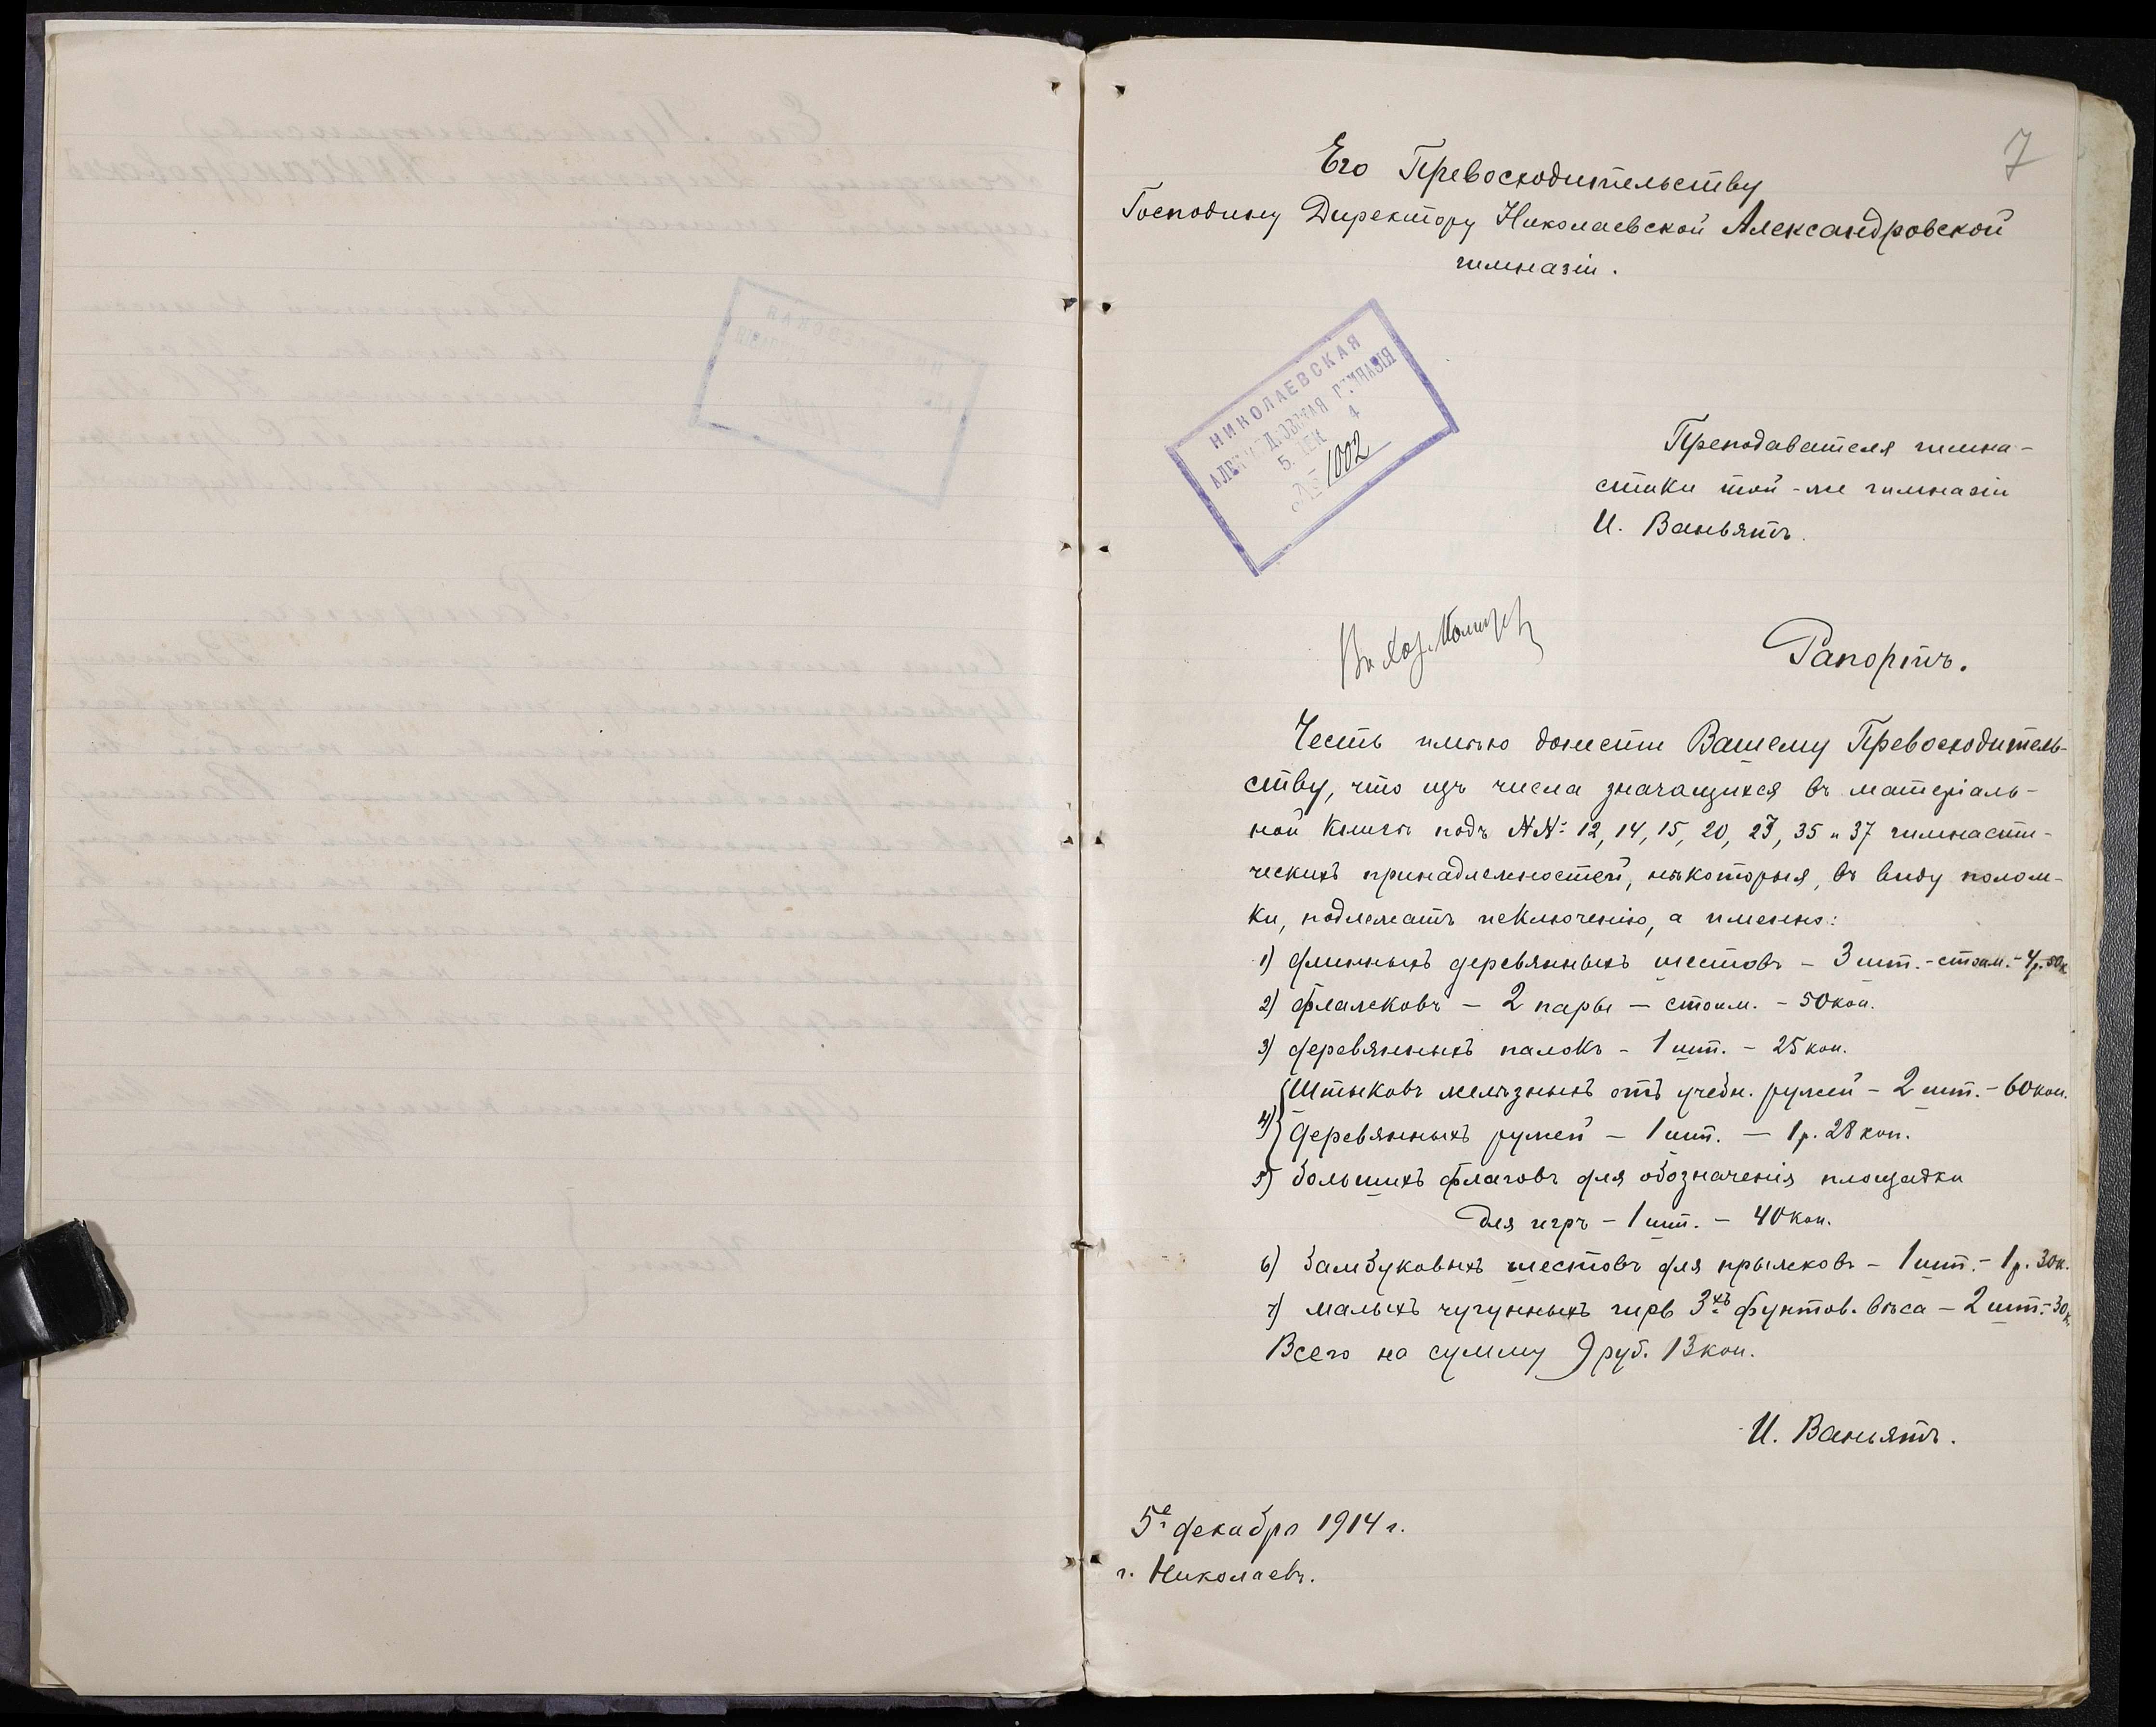 7
Его Превосходительству
Господину Директору Николаевской Александровской
гимназіи.
НИКОЛАЕВСКАЯ
ГИМНАЗІЯ
5. ДЕК 4
№ 1002
Преподавателя гимна-
стики той-же гимназіи
И. Ваньятъ.
Рапортъ.
Честь имѣю донести Вашему Превосходитель-
ству, что изъ числа значащихся въ матеріаль-
ной книгѣ подъ №№ 12, 14, 15, 20, 23, 35 и 37 гимнасти-
ческихъ принадлежностей, нѣкоторыя, въ виду полом-
ки, подлежатъ исключенію, а именно:
1) длинныхъ деревянныхъ шестовъ – 3 шт. – стоим. – 4р. 50к
2) флажковъ – 2 пары – стоим. – 50 коп.
3) деревянныхъ палокъ – 1 шт. – 25 коп.
Штыковъ желѣзныхъ отъ учебн. ружей – 2 шт. – 60 коп.
4) деревянныхъ ружей – 1 шт. – 1 р. 28 коп.
5) большихъ флаговъ для обозначенія площадки
для игръ – 1 шт. – 40 коп.
6) бамбуковыхъ шестовъ для прыжковъ – 1 шт. – 1 р. 30к.
7) малыхъ чугунныхъ гирь 3хъ фунтов. вѣса – 2 шт. – 30к.
Всего на сумму 9 руб. 13 коп.
И. Ваньятъ.
5е декабря 1914 г.
г. Николаевъ.